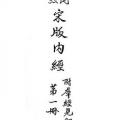 宋版內經
附羣經見
第一冊